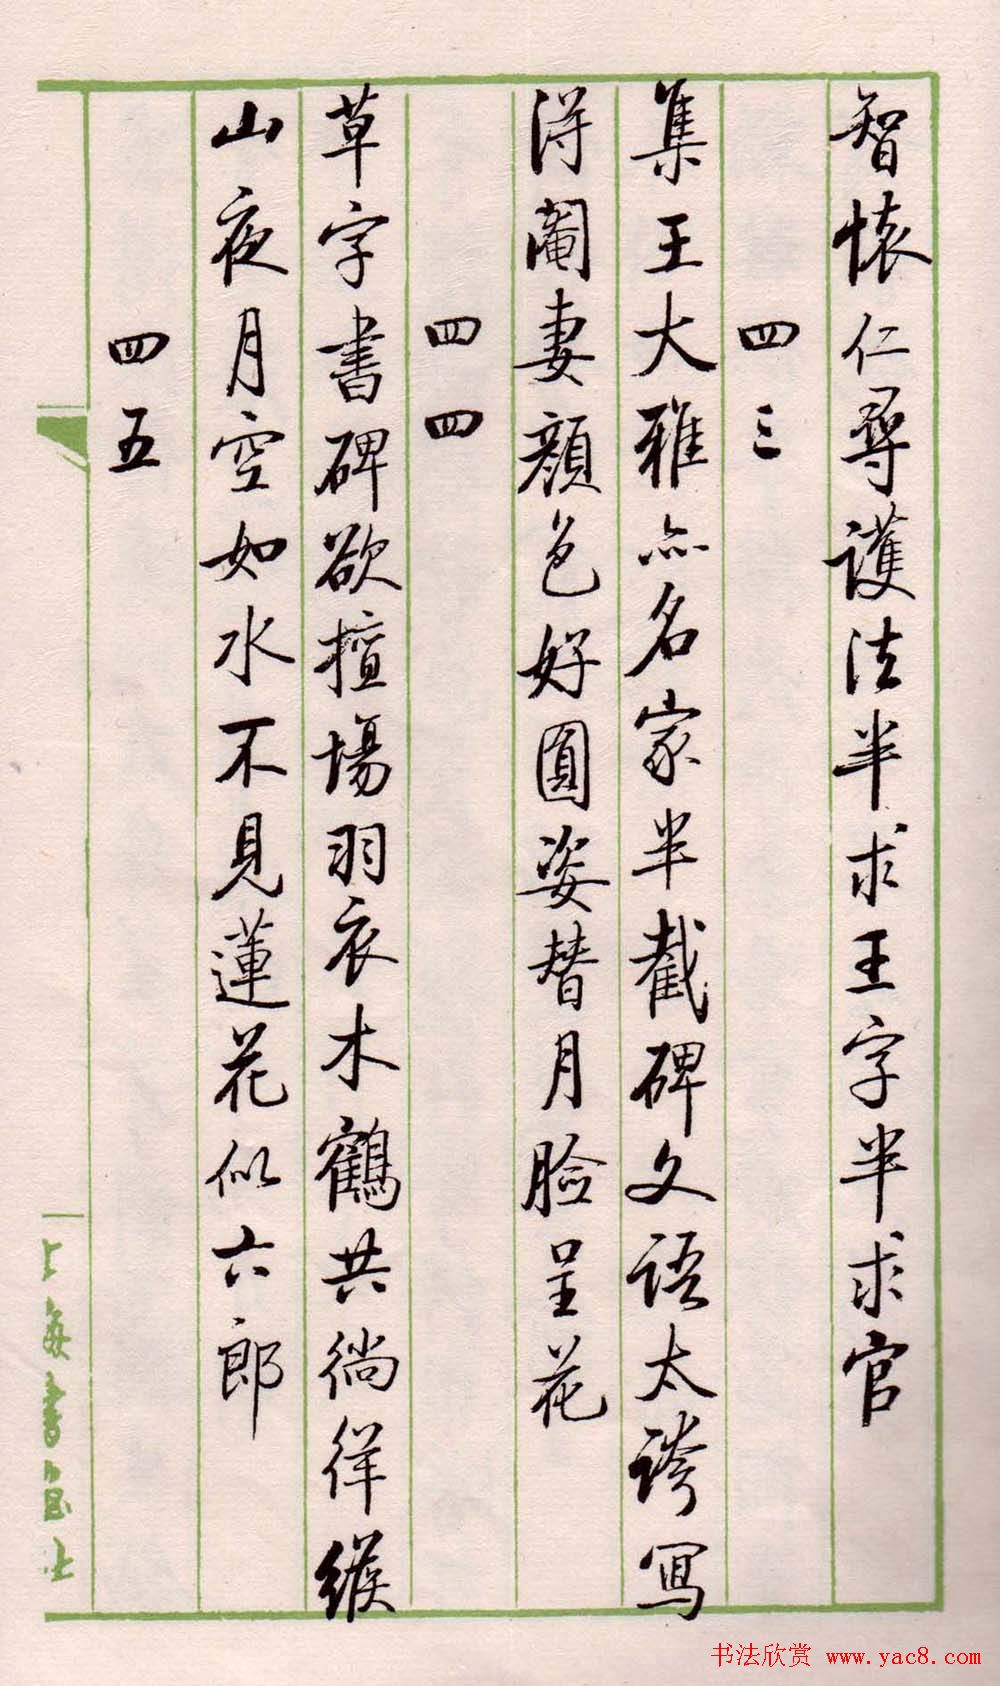 智懷仁尋護法半求王字半求官
四三
集王大雅亦名家半截碑文語太誇寫
得閹妻顏色好圓姿替月臉呈花
四四
草字書碑欲擅場羽衣木鶴共徜徉緱
山夜月空如水不見蓮花似六郎
四五
上海書画社
书法欣赏 www.yac8.com